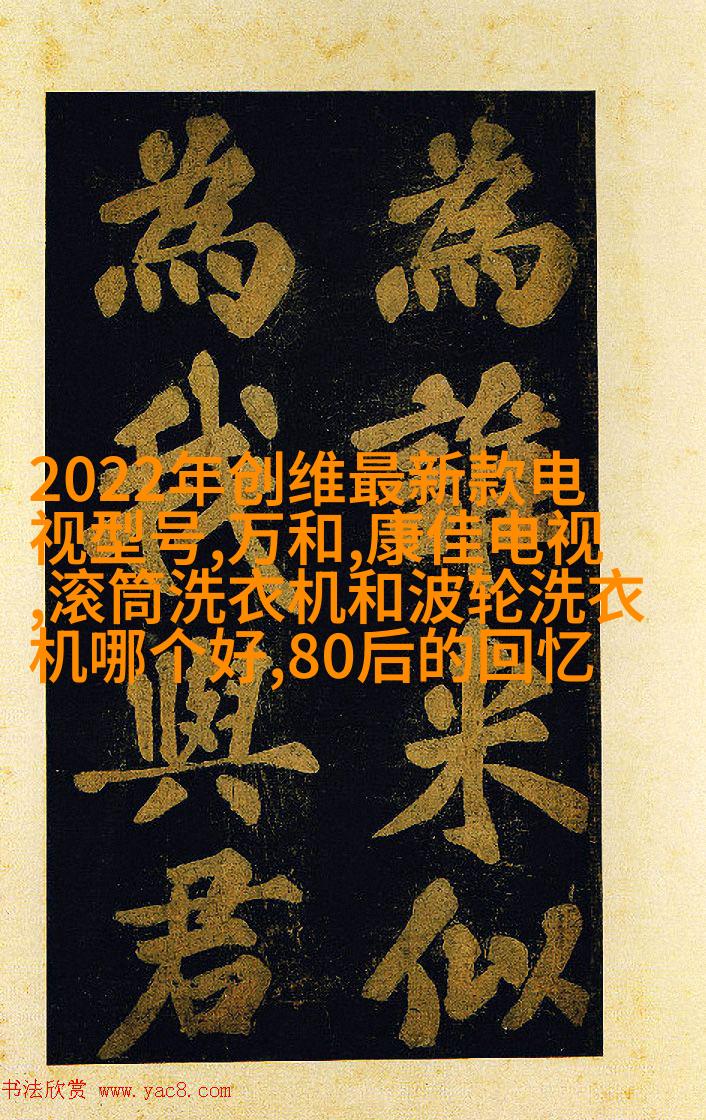 為誰米似
為我與君
2022年创维最新款电
视型号,万和,康佳电视
,滚筒洗衣机和波轮洗衣
机哪个好,80后的回忆
书法欣赏 www.yac8.com